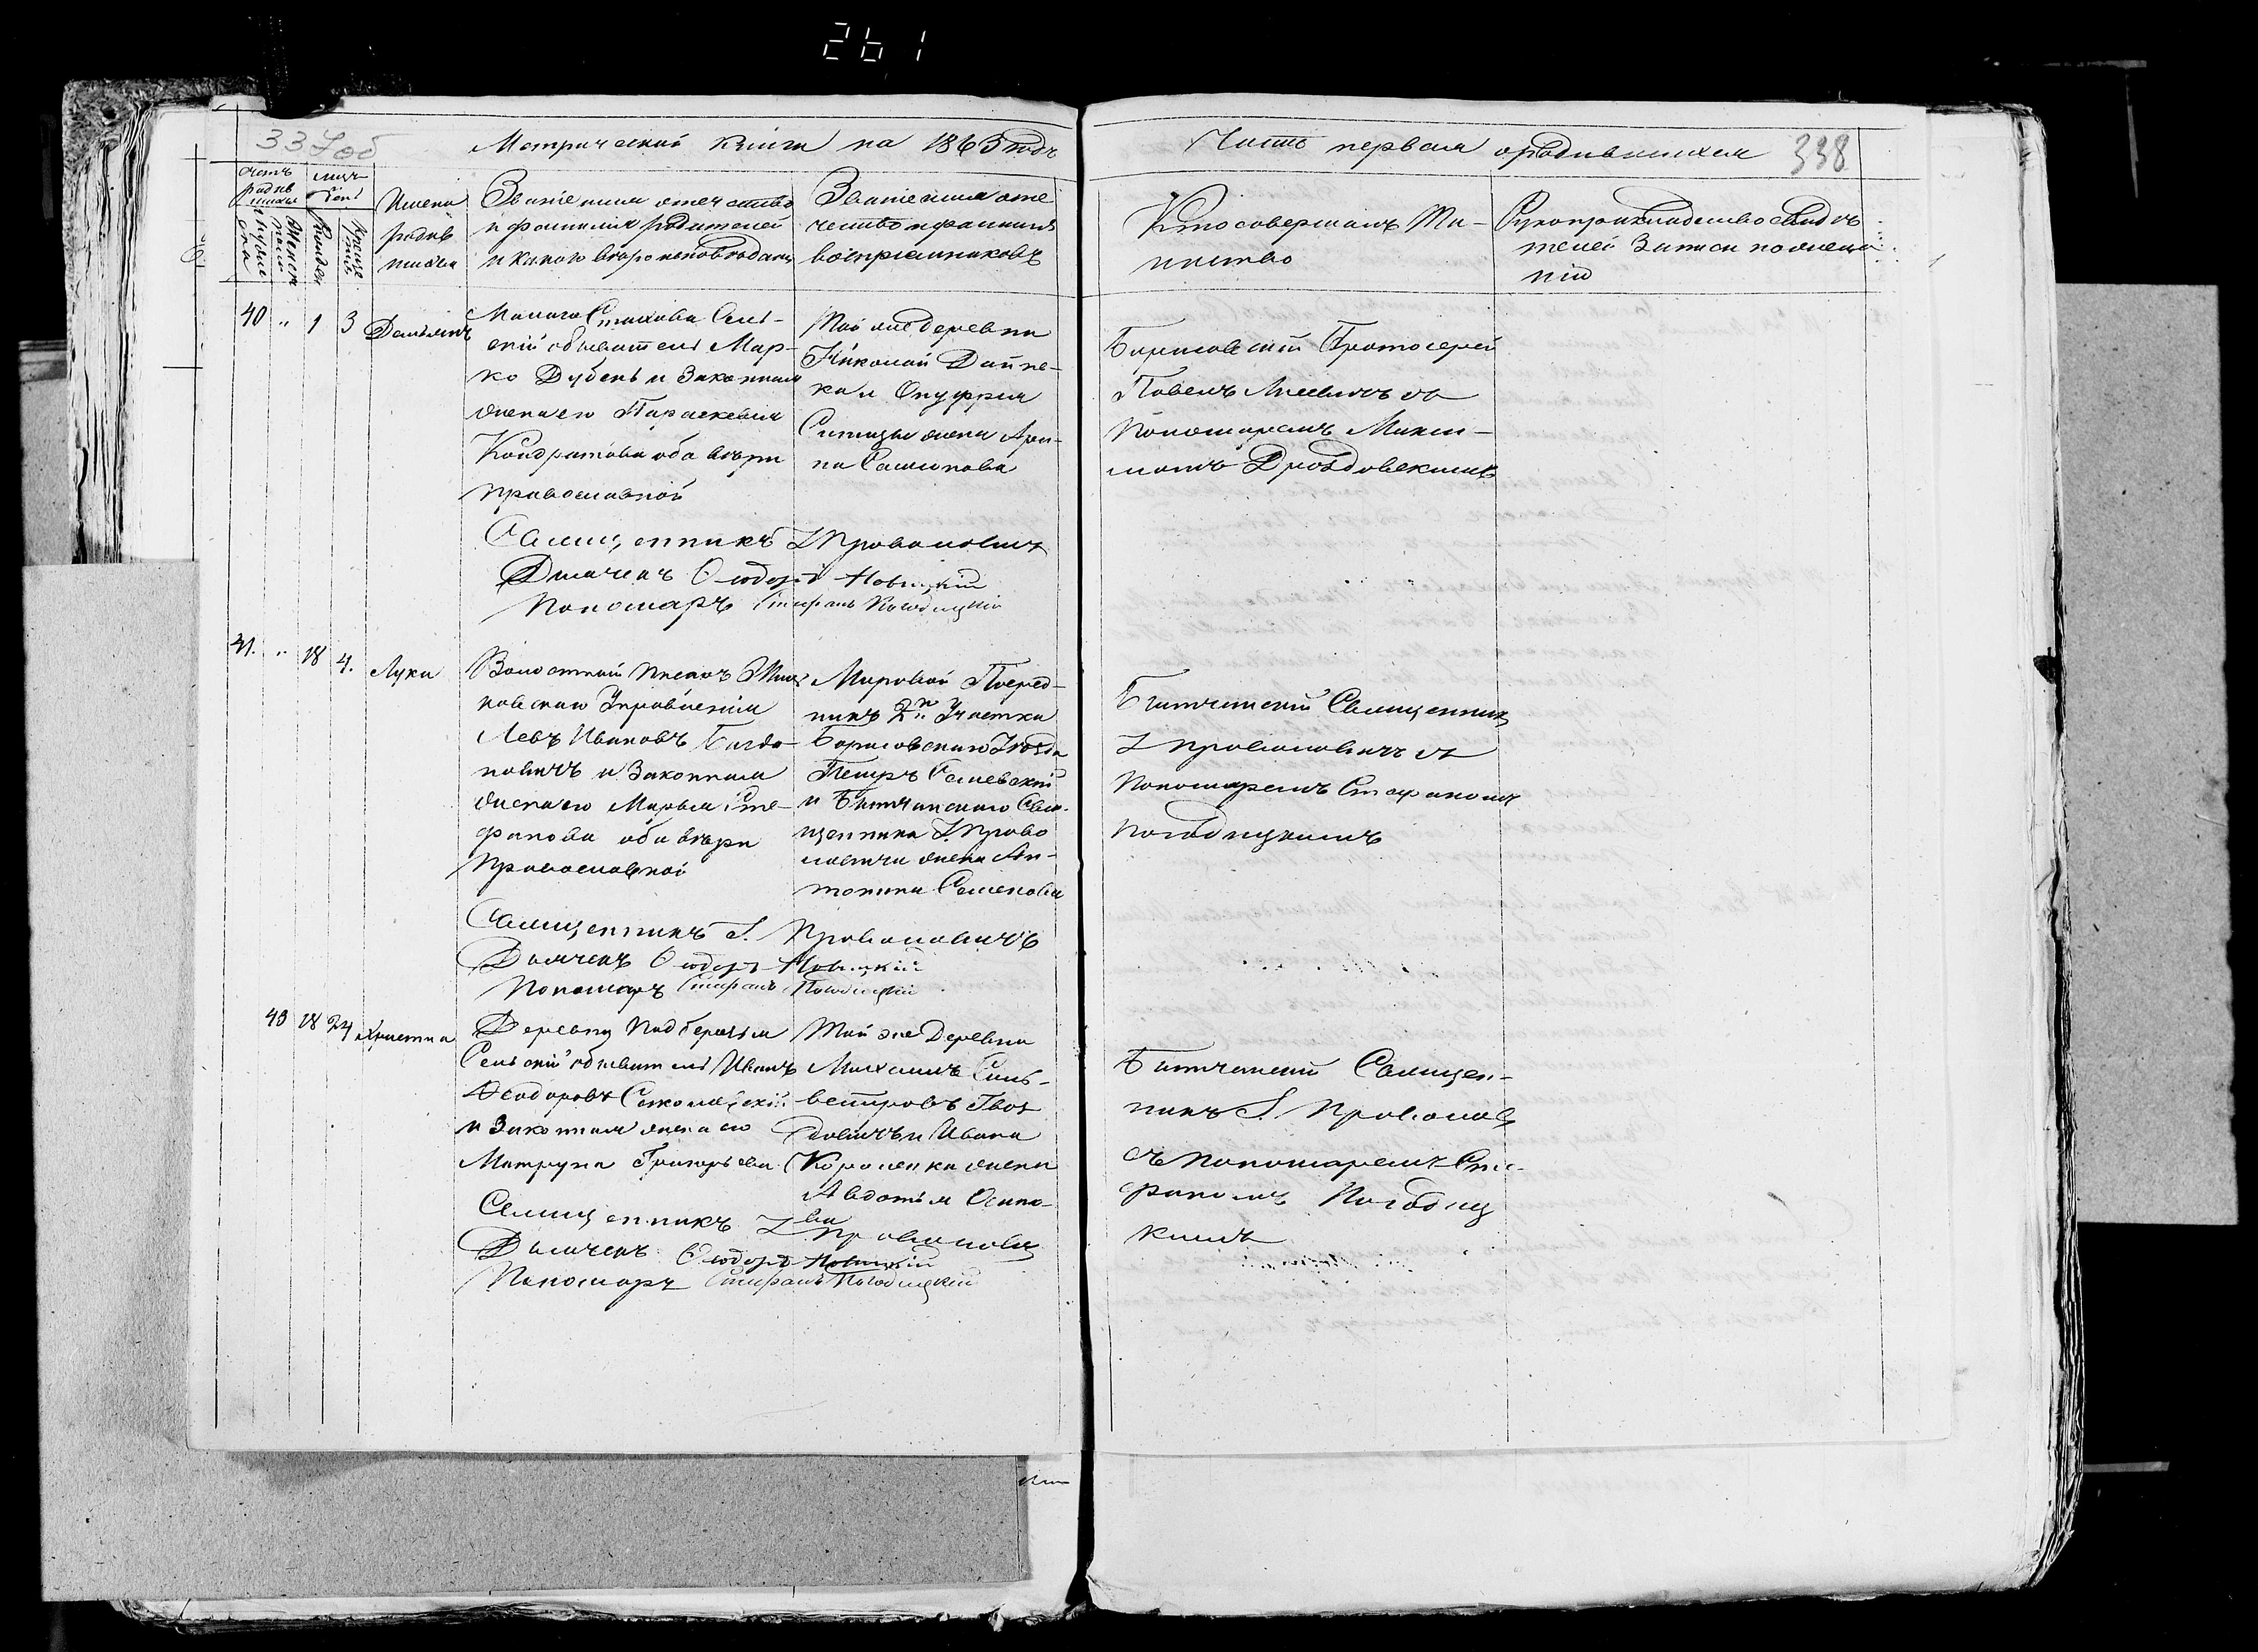 261
337 об
Метрической книги на 1863 годъ
Часть первая о родившихся
338
счетъ родив шихся
месяцъ день
Мужеска
Женска
Рожден
Креще нiя
Имена родив шихся
Званiе имя отчество и фамилiя родителей и какого вѣроисповѣданiя
Званiе имя отчество и фамилiя воспрiемниковъ
Кто совершалъ Таинство
Рукоприкладство свидѣтелей записи по желанiю
40 " 1 3 Демьянъ
Малаго Стахова Сель-
скiй обыватель Мар-
ко Дубень и Законная
жена его Параскевiя
Кондратова оба вѣры
православной
Той же деревни
Николай Дайне-
ка и Онуфрiя
Синицы жена Ари-
на Самсонова
Борисовскiй Протоiерей
Павелъ Лисевичъ съ
Пономаремъ Макси-
момъ Дроздовскимъ
Священникъ I Проволовичъ
Дьячекъ Ѳеодоръ Новицкiй
Пономарь Стефанъ Погодицкiй
41. " 18 4. Лука
Волостной писарь
Управленiя
Левъ Ивановъ Богда-
новичъ и Законная
жена его Марья Сте-
фанова оба вѣры
Православной
Мировой Посред-
никъ 2го Участка
Борисовскаго Уѣзда
Петръ
и Битчанскаго Свя-
щенника I Прово
ловича жена Ан-
тонина Семенова
Битчанскiй Священникъ
I Проволовичъ съ
Пономаремъ Стефаномъ
Погодицкимъ
Священникъ I. Проволовичъ
Дьячекъ Ѳеодоръ Новицкiй
Пономарь Стефанъ Погодицкiй
43 18 24 Христина
Деревни Подберезья
Сельскiй обыватель Иванъ
Ѳеодоровъ
и Законная жена его
Матруна Григорьева
Той же Деревни
Михаилъ Силь-
вестровъ Гвоз
довичъ и Ивана
Короленка жена
Авдотья Осипо-
ва
Битчанскiй Священ-
никъ I. Проволов
съ пономаремъ Сте-
фаномъ Погодиц
кимъ
Священникъ I Проволовичъ
Дьячекъ Ѳеодоръ Новицкiй
Пономарь Стефанъ Погодицкiй